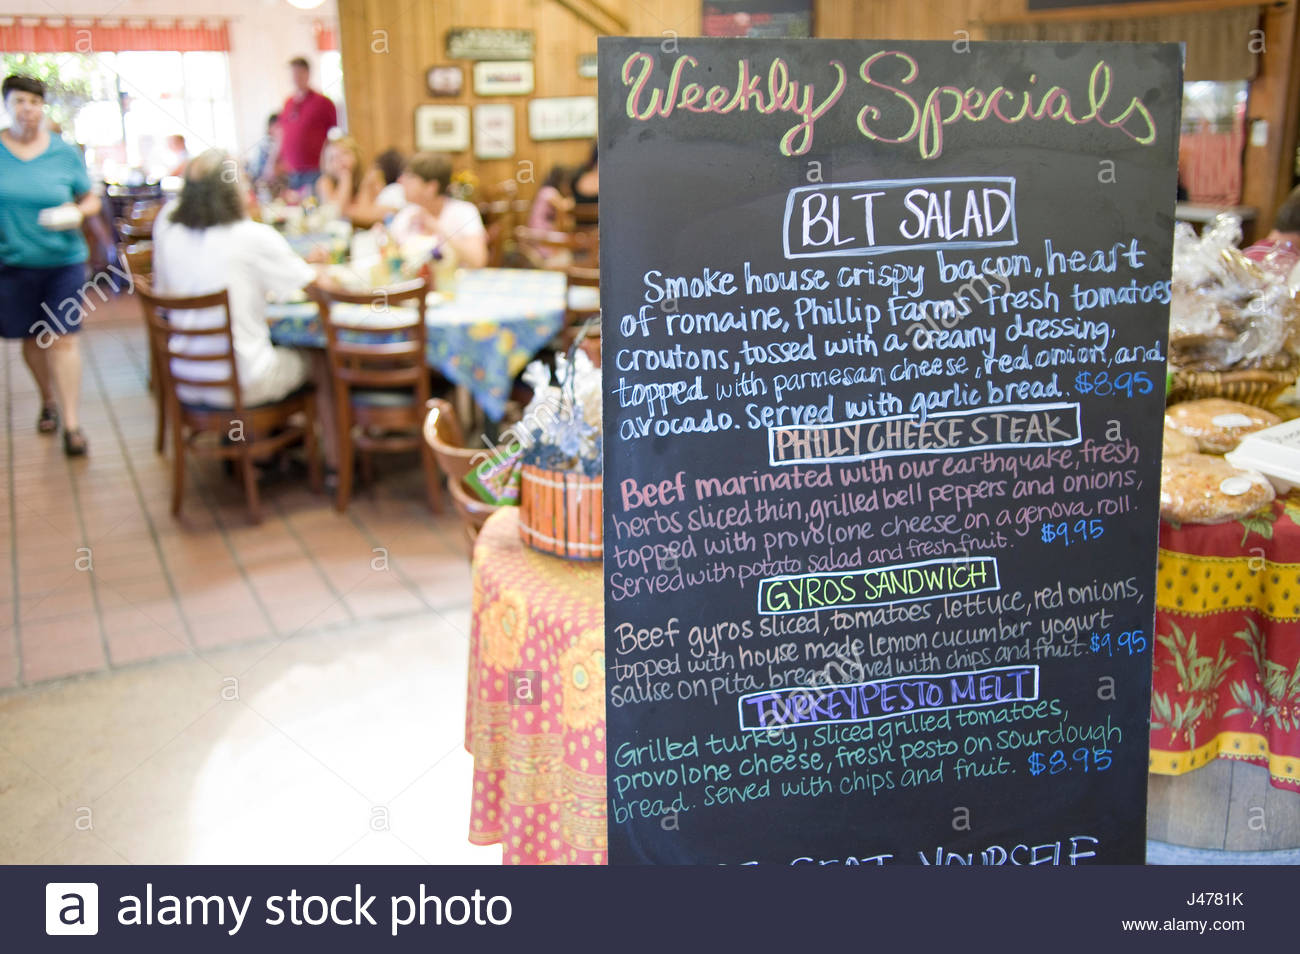 Weekly Specials
BLT SALAD
Smoke house crispy bacon, heart
of romaine, Phillip Farms fresh tomatoes
croutons, tossed with a creamy dressing,
topped with parmesan cheese, red onion, and
avocado. Served with garlic bread. $8.95
PHILLY CHEESE STEAK
Beef marinated with our earthquake, fresh
herbs sliced thin, grilled bell peppers and onions,
topped with provolone cheese on a genova roll.
Served with potato salad and fresh fruit. $9.95
GYROS SANDWICH
Beef gyros sliced, tomatoes, lettuce, red onions,
topped with house made lemon cucumber yogurt
sause on pita bread. Served with chips and fruit. $9.95
TURKEY PESTO MELT
Grilled turkey, sliced grilled tomatoes,
provolone cheese, fresh pesto on sourdough
bread. Served with chips and fruit. $8.95
SEAT YOURSELF
a alamy stock photo
J4781K
www.alamy.com